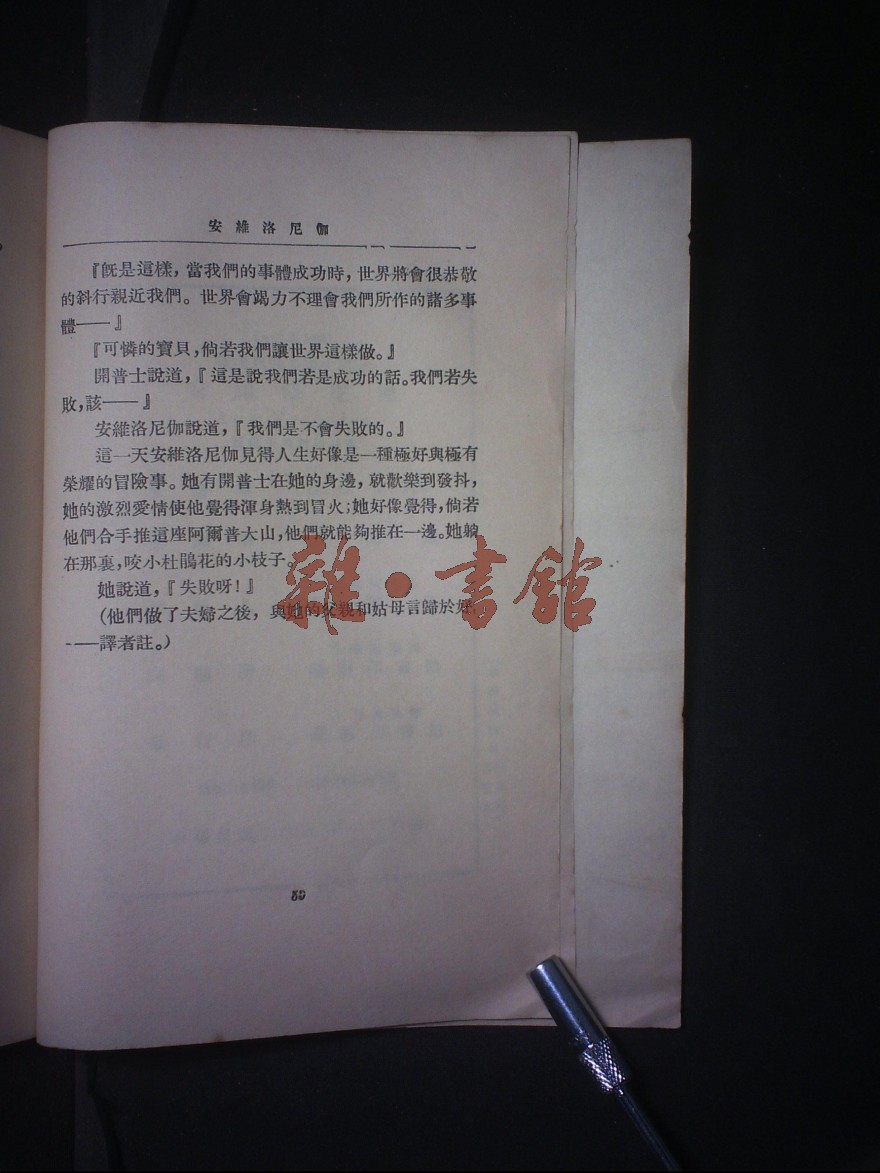 安維洛尼伽
『旣是這樣，當我們的事體成功時，世界將會很恭敬
的斜行親近我們。世界會竭力不理會我們所作的諸多事
體——』
『可憐的寶貝，倘若我們讓世界這樣做。』
開普士說道，『這是說我們若是成功的話。我們若失
敗，該——』
安維洛尼伽說道，『我們是不會失敗的。』
這一天安維洛尼伽見得人生好像是一種極好與極有
榮耀的冒險事。她有開普士在她的身邊，就歡樂到發抖，
她的激烈愛情使他覺得渾身熱到冒火；她好像覺得，倘若
他們合手推這座阿爾普大山，他們就能夠推在一邊。她躺
在那裏，咬小杜鵑花的小枝子。
她說道，『失敗呀！』
（他們做了夫婦之後，與她的父親和姑母言歸於好
——譯者註。）
雜·書館
59